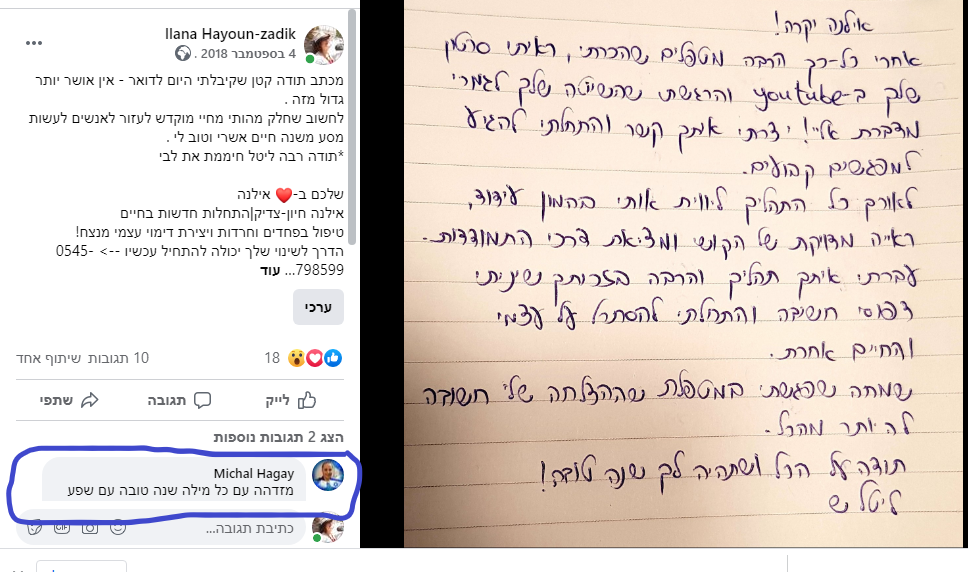 Ilana Hayoun-zadik
4 בספטמבר 2018 .
מכתב תודה קטן שקיבלתי היום לדואר - אין אושר יותר
גדול מזה .
לחשוב שחלק מהותי מחיי מוקדש לעזור לאנשים לעשות
מסע משנה חיים אשרי וטוב לי .
*תודה רבה ליטל חיממת את לבי
שלכם ב-❤️ אילנה
אילנה חיון-צדיק|התחלות חדשות בחיים
טיפול בפחדים וחרדות ויצירת דימוי עצמי מנצח!
הדרך לשינוי שלך יכולה להתחיל עכשיו --> 0545-
798599... עוד
ערכי
18
10 תגובות שיתוף אחד
לייק
תגובה
שתפי
הצג 2 תגובות נוספות
Michal Hagay
מזדהה עם כל מילה שנה טובה עם שפע
כתיבת תגובה...
GIF
אילנה יקרה!
אחרי כל-כך הרבה מטפלים שהכרתי, ראיתי סרטון
שלך ב-youtube והרגשתי שהשיטה שלך לגמרי
מדברת אליי! יצרתי אתך קשר והתחלתי להגיע
למפגשים קבועים.
לאורך כל התהליך ליווית אותי בהמון עידוד,
ראייה מדויקת של הקושי ומציאת דרכי התמודדות.
עברתי איתך תהליך והרבה בזכותך שיניתי
דפוסי חשיבה והתחלתי להסתכל על עצמי
והחיים אחרת.
שמחה שפגשתי במטפלת שההצלחה שלי חשובה
לה יותר מהכל.
תודה על הכל ושתהיה לך שנה טובה!
ליטל ש